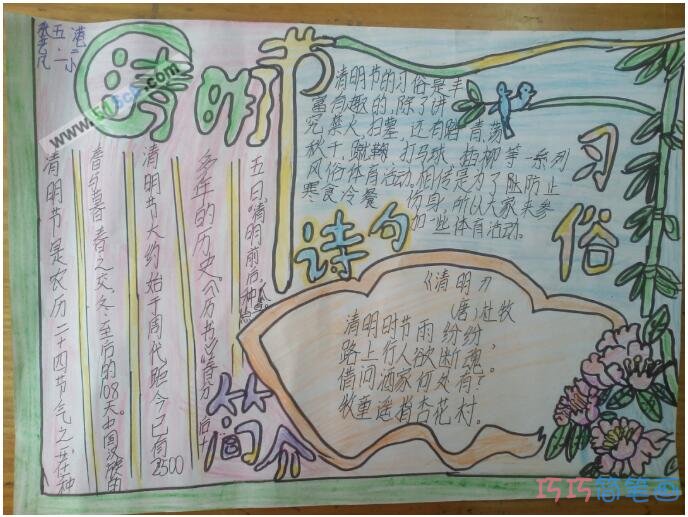 港二小
五·一
清明节
清明节的习俗是丰
富有趣的,除了讲
究禁火、扫墓,还有踏青、荡
秋千、蹴鞠、打马球、插柳等一系列
风俗体育活动。相传是为了
寒食冷餐伤身,所以大家来参
加一些体育活动。
习俗
诗句
《清明》
(唐)杜牧
清明时节雨纷纷,
路上行人欲断魂。
借问酒家何处有?
牧童遥指杏花村。
清明节是农历二十四节气之一,在种
春与暮春之交,冬至后的108天。中国汉族的
清明节大约始于周代,距今已有2500
多年的历史。《历书》:春分后十
五日,清明,前后,种
简介
巧巧简笔画